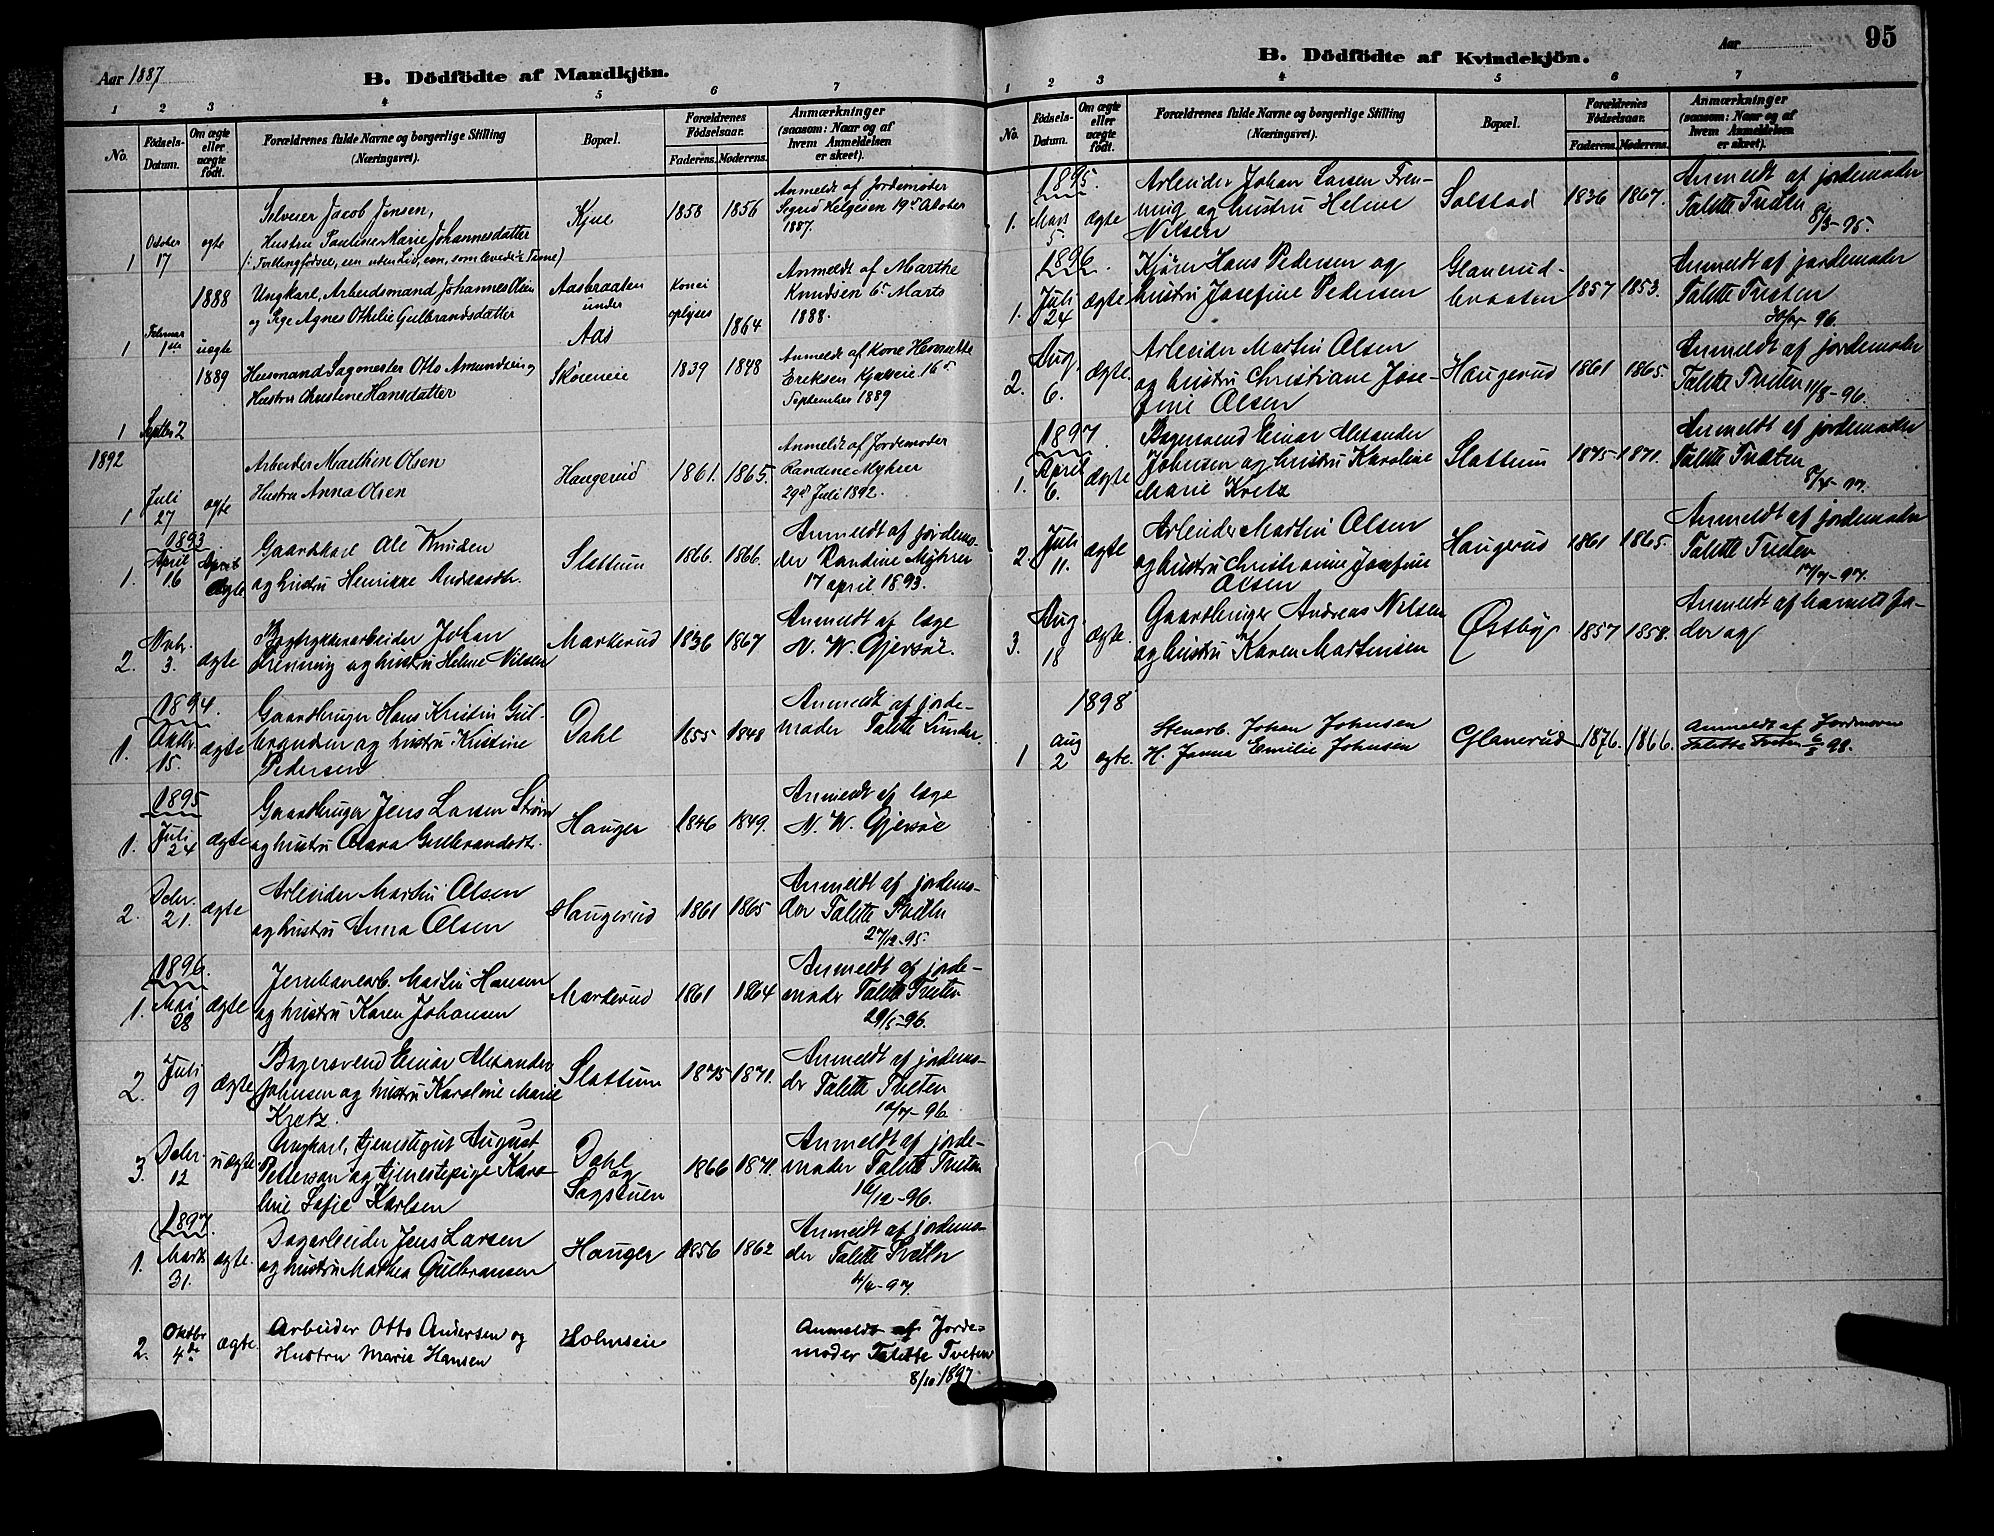 Aar 1887
B. Dödfödte af Mandkjön.
1 2 3 4 5 6 7
No.
Födsels-Datum.
Om ægte eller uægte födt.
Forældrenes fulde Navne og borgerlige Stilling (Næringsvei).
Bopæl.
Forældrenes Födselsaar.
Faderens. Moderens.
Anmærkninger (saasom: Naar og af hvem Anmeldelsen er skeet).
1 October 17 ægte
Selveier Jacob Jensen,
Hustru Pauline Marie Johannesdatter
(: Tvillingfødsel, een uden Liv, een, som levede i Time)
Kjul 1858 1856
Anmeldt af Jordemoder
Sigrid Helgesen 19de October
1887.
1888
1 Februar 1ste uægte
Ungkarl, Arbeidsmand Johannes Olsen
og Pige Agnes Othilie Gulbrandsdatter
Aasbraaten
under
Aas
Kan ei
oplyses 1864
Anmeldt af Marthe
Knudsen 6te Marts
1888.
1889
1 Septbr 2
Husmand Sagmester Otto Amundsen og
Hustru Christine Hansdatter
Skøieneie 1839 1848
Anmeldt af Kone Henriette
Eriksen 16de
September 1889
1892
1 Juli 27 ægte
Arbeider Marthin Olsen
Hustru Anna Olsen
Haugerud 1861. 1865.
Anmeldt af Jordemoder
Randine Myhrer
29de Juli 1892.
1893
1. April 16 Ægte
Gaardkarl Ole Knudsen
og hustru Henrikke Andreasdtr.
Slattum 1866. 1866.
Anmeldt af jordemo-
der Randine Myhrer
17 april 1893.
2. Novbr. 3. ægte
Johan
Frenning og hustru Helene Nilsen
Markerud 1836 1867
Anmeldt af læge
N. W. Gjersøe.
1894.
1. Oktbr. 15. ægte
Gaardbruger Hans Kristin Gul-
brandsen og hustru Kristine
Pedersen
Dahl 1855 1848
Anmeldt af jorde-
moder Talette Sunder.
1895
1. Juli 24 ægte
Gaardbruger Jens Larsen Strøm
og hustru Clara Gulbrandsdtr.
Hauger 1846 1849.
Anmeldt af læge
N. W. Gjersøe
2. Dcbr. 21. ægte
Arbeider Martin Olsen
og hustru Anna Olsen
Haugerud 1861 1865
Anmeldt af jordemo-
der Talette Tveten
27/12-95.
1896.
1. Mai 28 ægte
Jernbanearb. Martin Hansen
og hustru Karen Johansen
Markerud 1861 1864
Anmeldt af jorde-
moder Talette Tveten
29/5-96.
2. Juli 9 ægte
Bagersvend Einar Alexander
Johnsen og hustru Karoline Marie
Kretz.
Slattum 1875 1871.
Anmeldt af jordemo-
der Talette Tveten
10/7-96.
3. Dcbr. 12 uægte
Ungkarl, tjenestegut August
Petterson og tjenestepige Karo-
line Sofie Karlsen
Dahl
og
Sagstuen
1866 1871.
Anmeldt af jorde-
moder Talette Tveten
16/12-96.
1897.
1. Marts 31. ægte.
Dagarbeider Jens Larsen
og hustru Marthea Gulbransen
Hauger 1856 1862
Anmeldt af jordemo-
der Talette Tveten
4/4-97.
2. Oktbr 4de ægte.
Arbeider Otto Andersen og
Hustru Marie Hansen
Holmseie
Anmeldt af Jorde-
moder Talette Tveten
8/10 1897
Aar
95
B. Dödfödte af Kvindekjön.
1 2 3 4 5 6 7
No.
Födsels-Datum.
Om ægte eller uægte födt.
Forældrenes fulde Navne og borgerlige Stilling (Næringsvei).
Bopæl.
Forældrenes Födselsaar.
Faderens. Moderens.
Anmærkninger (saasom: Naar og af hvem Anmeldelsen er skeet).
1895.
1. Mars 5. ægte
Arbeider Johan Larsen Fren-
ning og hustru Helene
Nilsen
Solstad 1836 1867.
Anmeldt af jordemoder
Talette Tveten
8/3-95.
1896.
1. Juli 24 ægte
Kjører Hans Pedersen og
hustru Josefine Pedersen
Glanerud-
braaten 1857 1853.
Anmeldt af jordemoder
Talette Tveten
30/7 96.
2. Aug. 6. ægte.
Arbeider Martin Olsen
og hustru Christiane Jose-
fine Olsen
Haugerud 1861 1865.
Anmeldt af jordemoder
Talette Tveten 11/8-96.
1897
1. April 6. ægte
Bagersvend Einar Alexander
Johnsen og hustru Karoline
Marie Kretz
Slattum 1875 1871.
Anmeldt af jordemoder
Talette Tveten
8/4-97.
2 Juli 11. ægte
Arbeider Martin Olsen
og hustru Christianne Josefine
Olsen
Haugerud 1861 1865.
Anmeldt af jordemoder
Talette Tveten
17/7-97.
3. Aug. 18 ægte.
Gaardbruger Andreas Nilsen
og hustru Karen Martinsen
Østby 1857 1858.
Anmeldt af barnets fa-
der og
1898
1 Aug 2 ægte.
Stenarb. Johan Johnsen
H. Janna Emilie Johnsen
Glanerud 1876. 1866.
Anmeldt af Jordmoren
Talette Tveten 6/8 98.